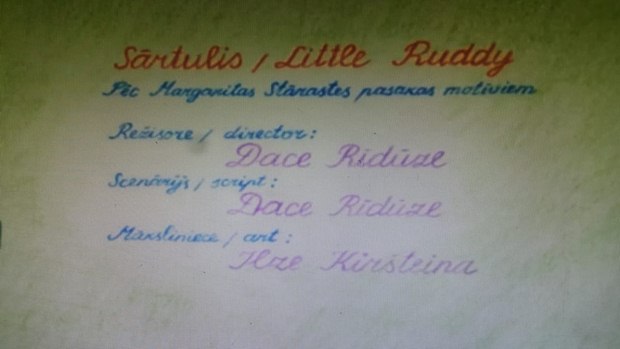 Sārtulis / Little Ruddy
Pēc Margaritas Stārastes pasakas motīviem
Režisore / director:
Dace Rīdūze
Scenārijs / script:
Dace Rīdūze
Māksliniece / art:
Ilze Kiršteina